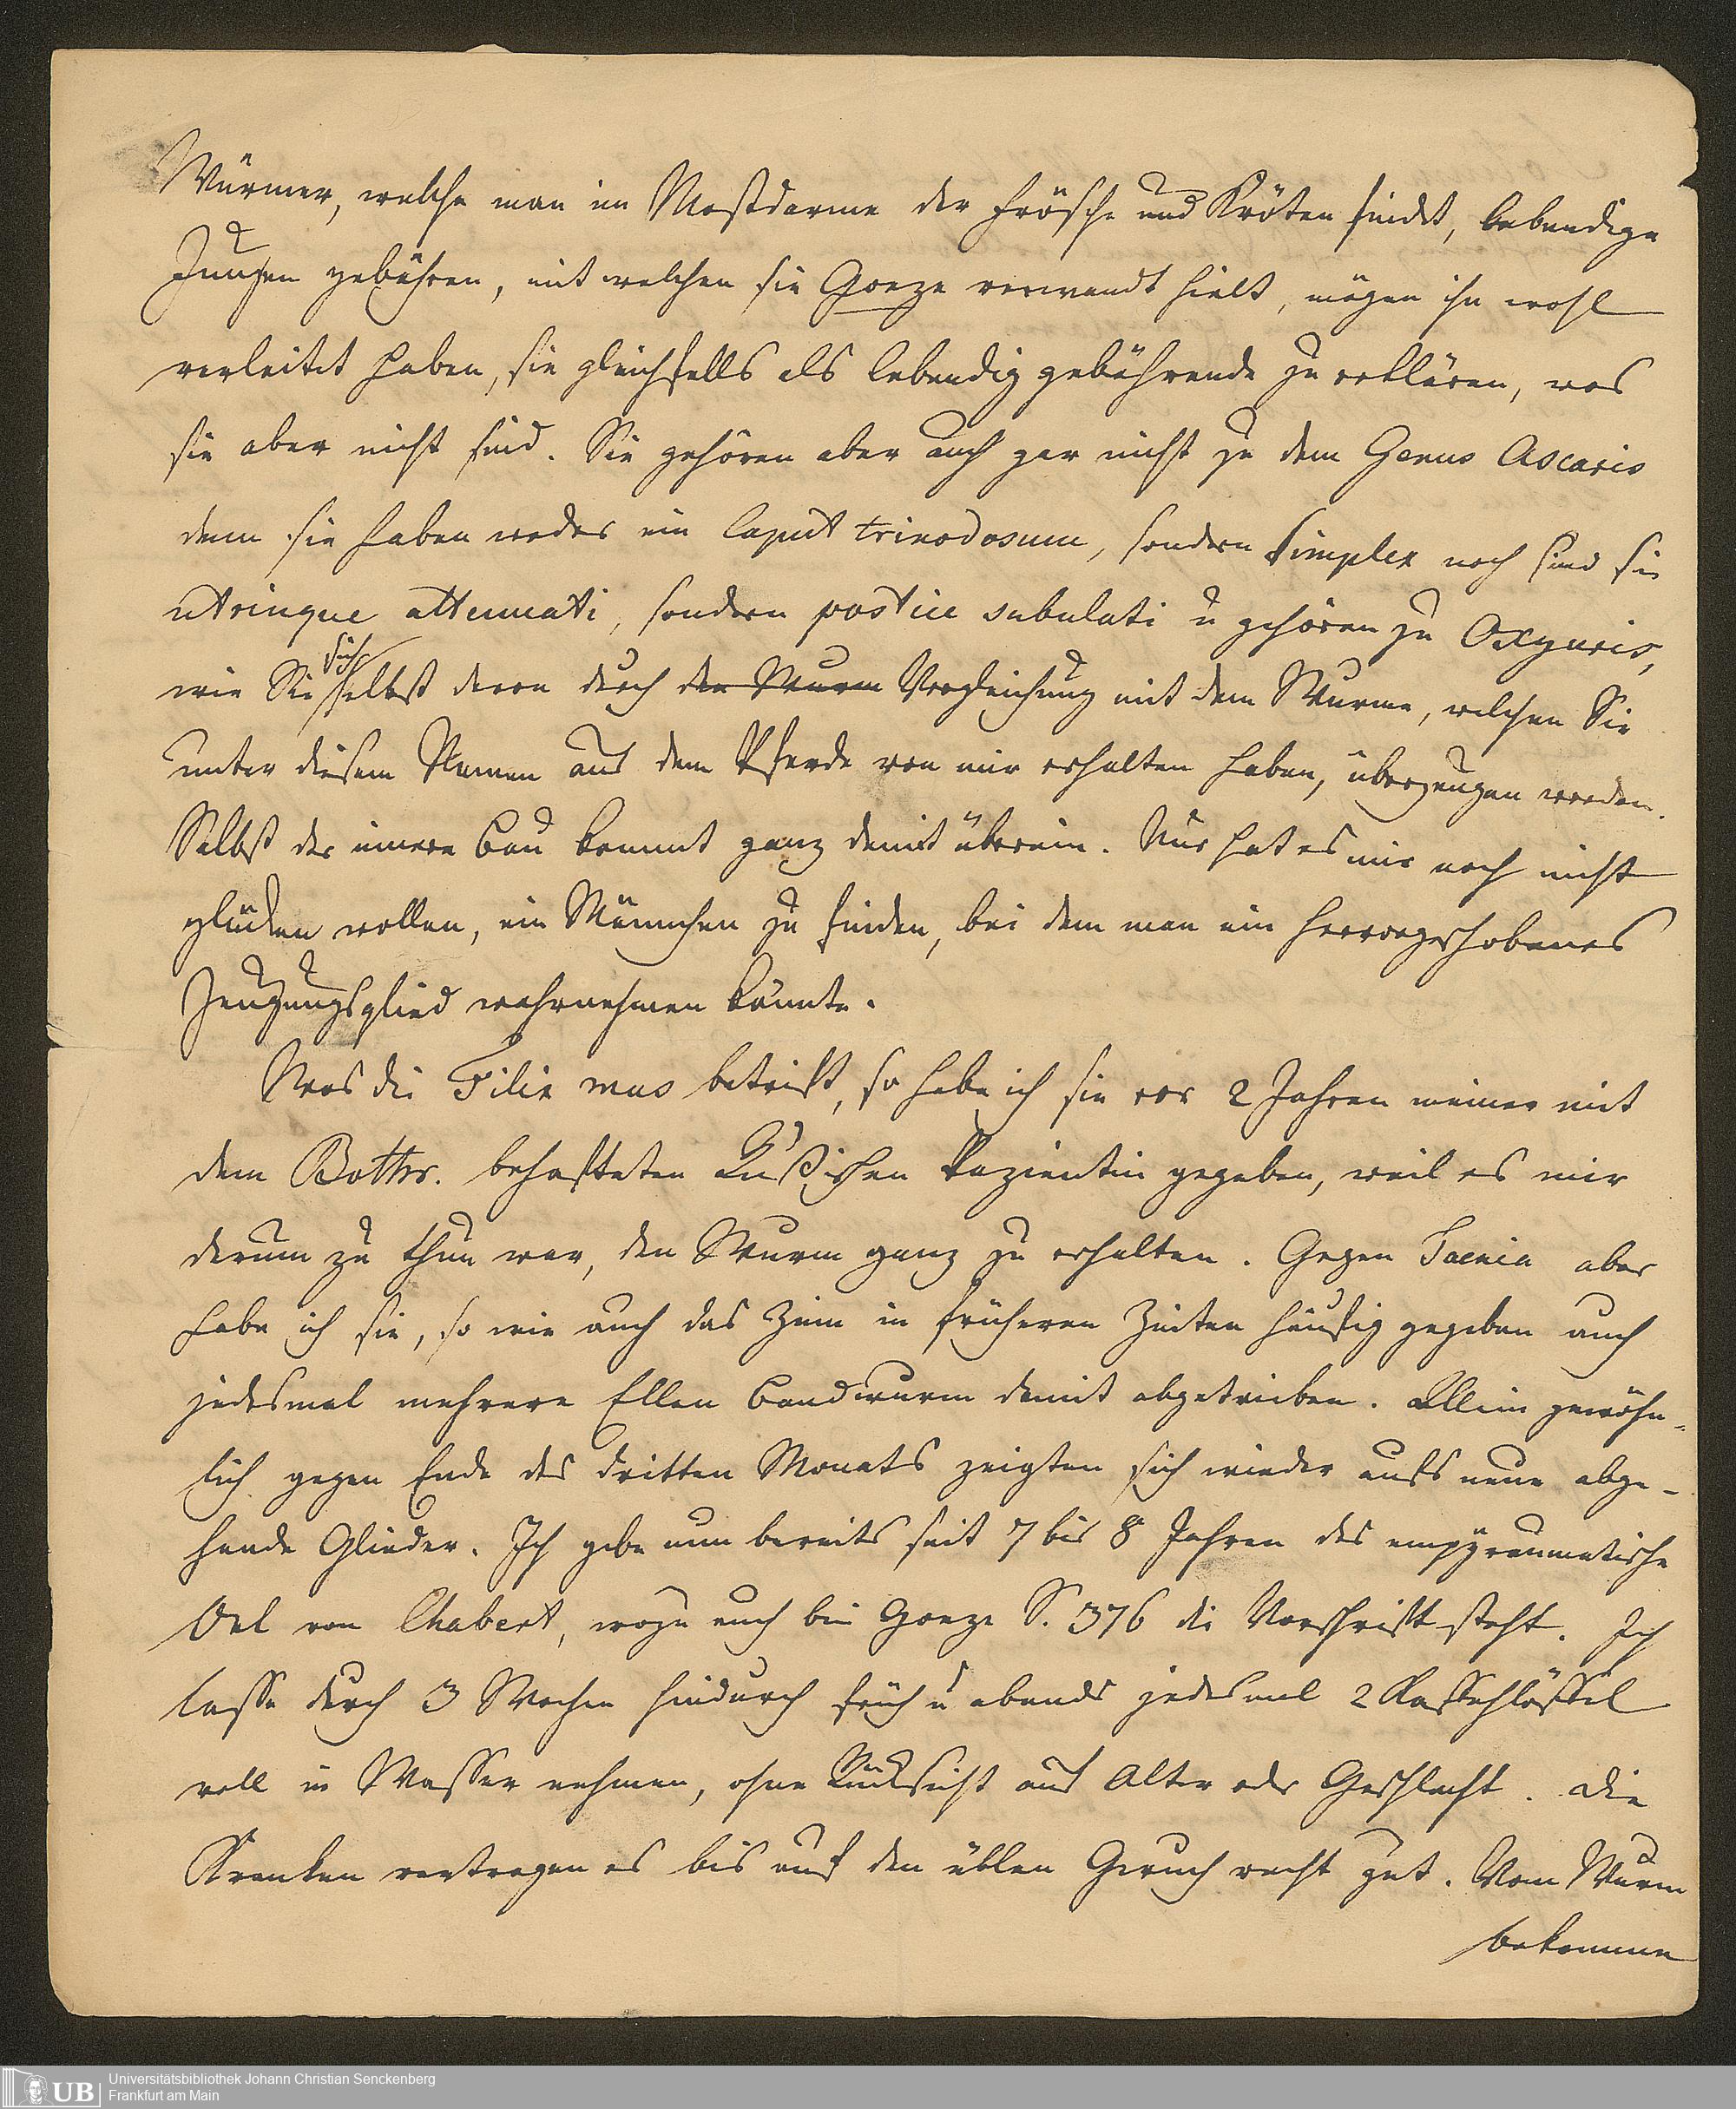 Würmer, welche man im Mastdarme der Frösche und Kröten findet, lebendige
Jungen gebähren, mit welchen sie Goeze verwandt hielt, mögen ihn wohl
verleitet haben, sie gleichfalls als lebendig gebährende zu erklären, was
sie aber nicht sind. Sie gehören aber auch gar nicht zu dem Genus Ascaris
denn sie haben weder ein Caput trinodosum, sondern simplex noch sind sie
utrinque attenuati, sondern postice subulati u gehören zu Oxyuris,
wie Sie sich selbst davon durch den Wurm Vergleichung mit dem Wurme, welchen Sie
unter diesem Namen aus dem Pferde von mir erhalten haben, überzeugen werden.
Selbst der innere Bau kommt ganz damit überein. Nur hat es mir noch nicht
glücken wollen, ein Männchen zu finden, bei dem man ein hervorgeschobenes
Zeugungsglied wahrnehmen könnte.
Was die Filix mas betrift, so habe ich sie vor 2 Jahren meiner mit
dem Bothr. behafteten Rußischen Pazientin gegeben, weil es mir
darum zu thun war, den Wurm ganz zu erhalten. Gegen Taenia aber
habe ich sie, so wie auch das Zinn in früheren Zeiten häufig gegeben auch
jedesmal mehrere Ellen Bandwurm damit abgetrieben. Allein gewöhn-
lich gegen Ende des dritten Monats zeigten sich wieder aufs neue abge-
hende Glieder. Ich gebe nun bereits seit 7 bis 8 Jahren das empÿreumatische
Oel von Chabert, wozu auch bei Goeze S. 376 die Vorschrift steht. Ich
lasse durch 3 Wochen hindurch früh u abends jedesmal 2 Kaffehlöffel
voll in Wasser nehmen, ohne Rücksicht auf Alter oder Geschlecht. Die
Kranken vertragen es bis auf den üblen Geruch recht gut. Vom Wurm
bekommen
Universitätsbibliothek Johann Christian Senckenberg
Frankfurt am Main
UB